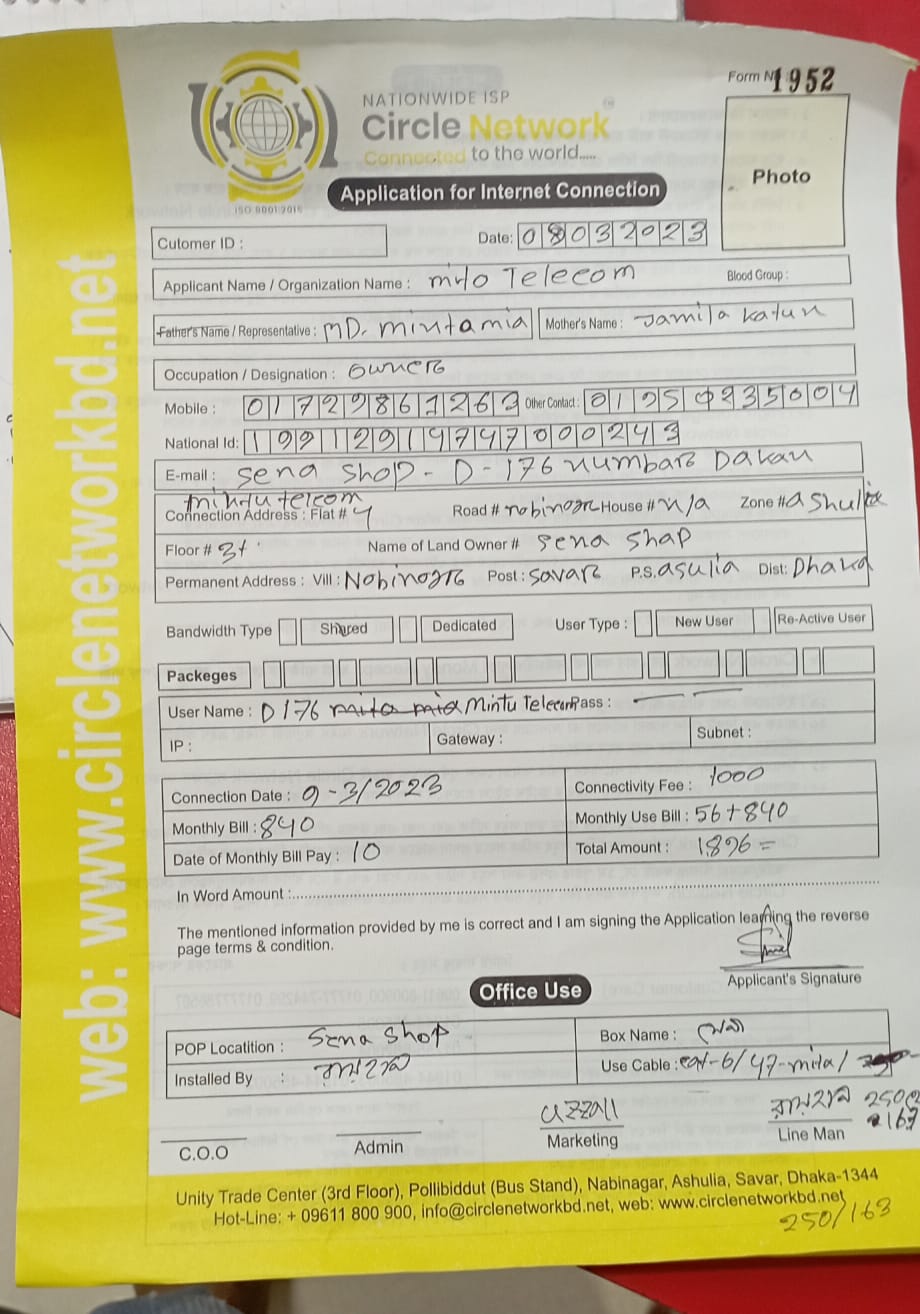 Form No 1952
NATIONWIDE ISP
Circle Network
Connected to the world.....
ISO 9001:2015
Application for Internet Connection
Photo
Cutomer ID :
Date: 08032023
Applicant Name / Organization Name : Telecom Blood Group :
Father's Name / Representative : MD. mintamia Mother's Name : Jamila Katun
Occupation / Designation : owner
Mobile : 01729861263 Other Contact :
National Id: 19912914747000243
E-mail : sena shop - D - 176 numbar Dakan
mintu telcom
Connection Address : Flat # 4 Road # House # n/a Zone # ashulia
Floor # Name of Land Owner # sena shap
Permanent Address : Vill : Post : savar P.S. asulia Dist: Dhaka
Bandwidth Type Shared Dedicated User Type : New User Re-Active User
Packeges
User Name : D176 Mintu Telecom Pass :
IP : Gateway : Subnet :
Connection Date : 9-3/2023 Connectivity Fee : 1000
Monthly Bill : 840 Monthly Use Bill : 56+840
Date of Monthly Bill Pay : 10 Total Amount : 1896 =
In Word Amount :
The mentioned information provided by me is correct and I am signing the Application learning the reverse
page terms & condition.
Applicant's Signature
Office Use
POP Locatition : Sena Shop Box Name :
Installed By : Use Cable : cat-6/
uzzall
C.O.O Admin Marketing Line Man
Unity Trade Center (3rd Floor), Pollibiddut (Bus Stand), Nabinagar, Ashulia, Savar, Dhaka-1344
Hot-Line: + 09611 800 900, info@circlenetworkbd.net, web: www.circlenetworkbd.net
250/163
web: www.circlenetworkbd.net